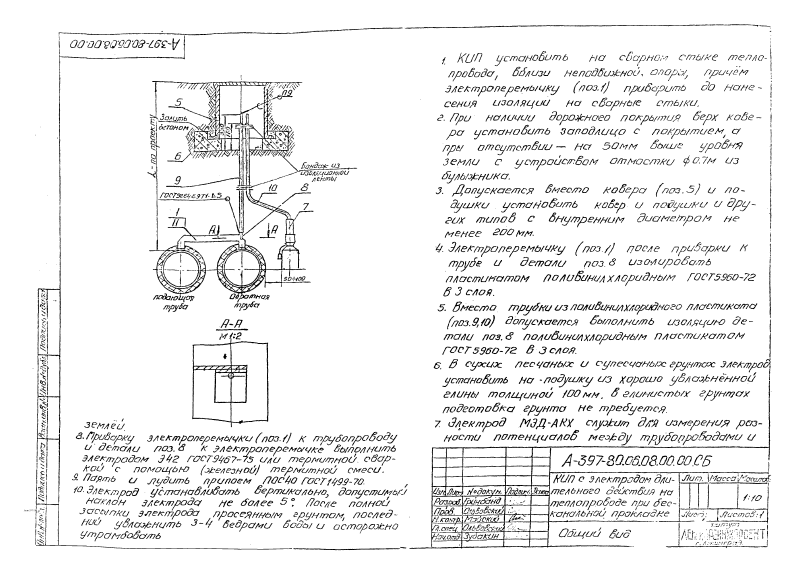 А-397-80.06.08.00.00
5
Залить
бетоном
6
L - по проекту
ГОСТ5264-69
1
11
А
А
9
10
8
7
Бандаж из
изоляционной
ленты
50÷100
подающая
труба
Обратная
труба
А-А
М1:2
1. КИП установить на сварном стыке тепло-
провода, вблизи неподвижной опоры, причём
электроперемычку (поз.1) приварить до нане-
сения изоляции на сварные стыки.
2. При наличии дорожного покрытия верх кове-
ра установить заподлицо с покрытием, а
при отсутствии — на 50мм выше уровня
земли с устройством отмостки ф0.7м из
булыжника.
3. Допускается вместо ковера (поз.5) и по-
душки установить ковер и подушки и дру-
гих типов с внутренним диаметром не
менее 200мм.
4. Электроперемычку (поз.1) после приварки к
трубе и детали поз.8 изолировать
пластикатом поливинилхлоридным ГОСТ5960-72
в 3 слоя.
5. Вместо трубки из поливинилхлоридного пластиката
(поз.9,10) допускается выполнить изоляцию де-
тали поз.8 поливинилхлоридным пластикатом
ГОСТ5960-72 в 3 слоя.
6. В сухих песчаных и супесчаных грунтах электрод
установить на подушку из хорошо увлажнённой
глины толщиной 100мм, в глинистых грунтах
подготовка грунта не требуется.
7. Электрод МЭД-АКХ служит для измерения раз-
ности потенциалов между трубопроводами и
землёй.
8. Приварку электроперемычки (поз.1) к трубопроводу
и детали поз.8 к электроперемычке выполнить
электродом Э42 ГОСТ9467-75 или термитной свар-
кой с помощью (железной) термитной смеси.
9. Паять и лудить припоем ПОС40 ГОСТ1499-70.
10. Электрод устанавливать вертикально, допустимый
наклон электрода не более 5°. После полной
засыпки электрода просеянным грунтом, послед-
ний увлажнить 3-4 ведрами воды и осторожно
утрамбовать
А-397-80.06.08.00.00.СБ
КИП с электродом дли-
тельного действия на
теплопроводе при бес-
канальной прокладке
Общий вид
Лит. Масса Масштаб
1:10
Лист: Листов:1
Изм Лист № докум. Подпись Дата
Разраб.
Пров. Ольховский
Н.контр. Мэйский
Гл.спец. Ольховский
Нач.отд Зудакин